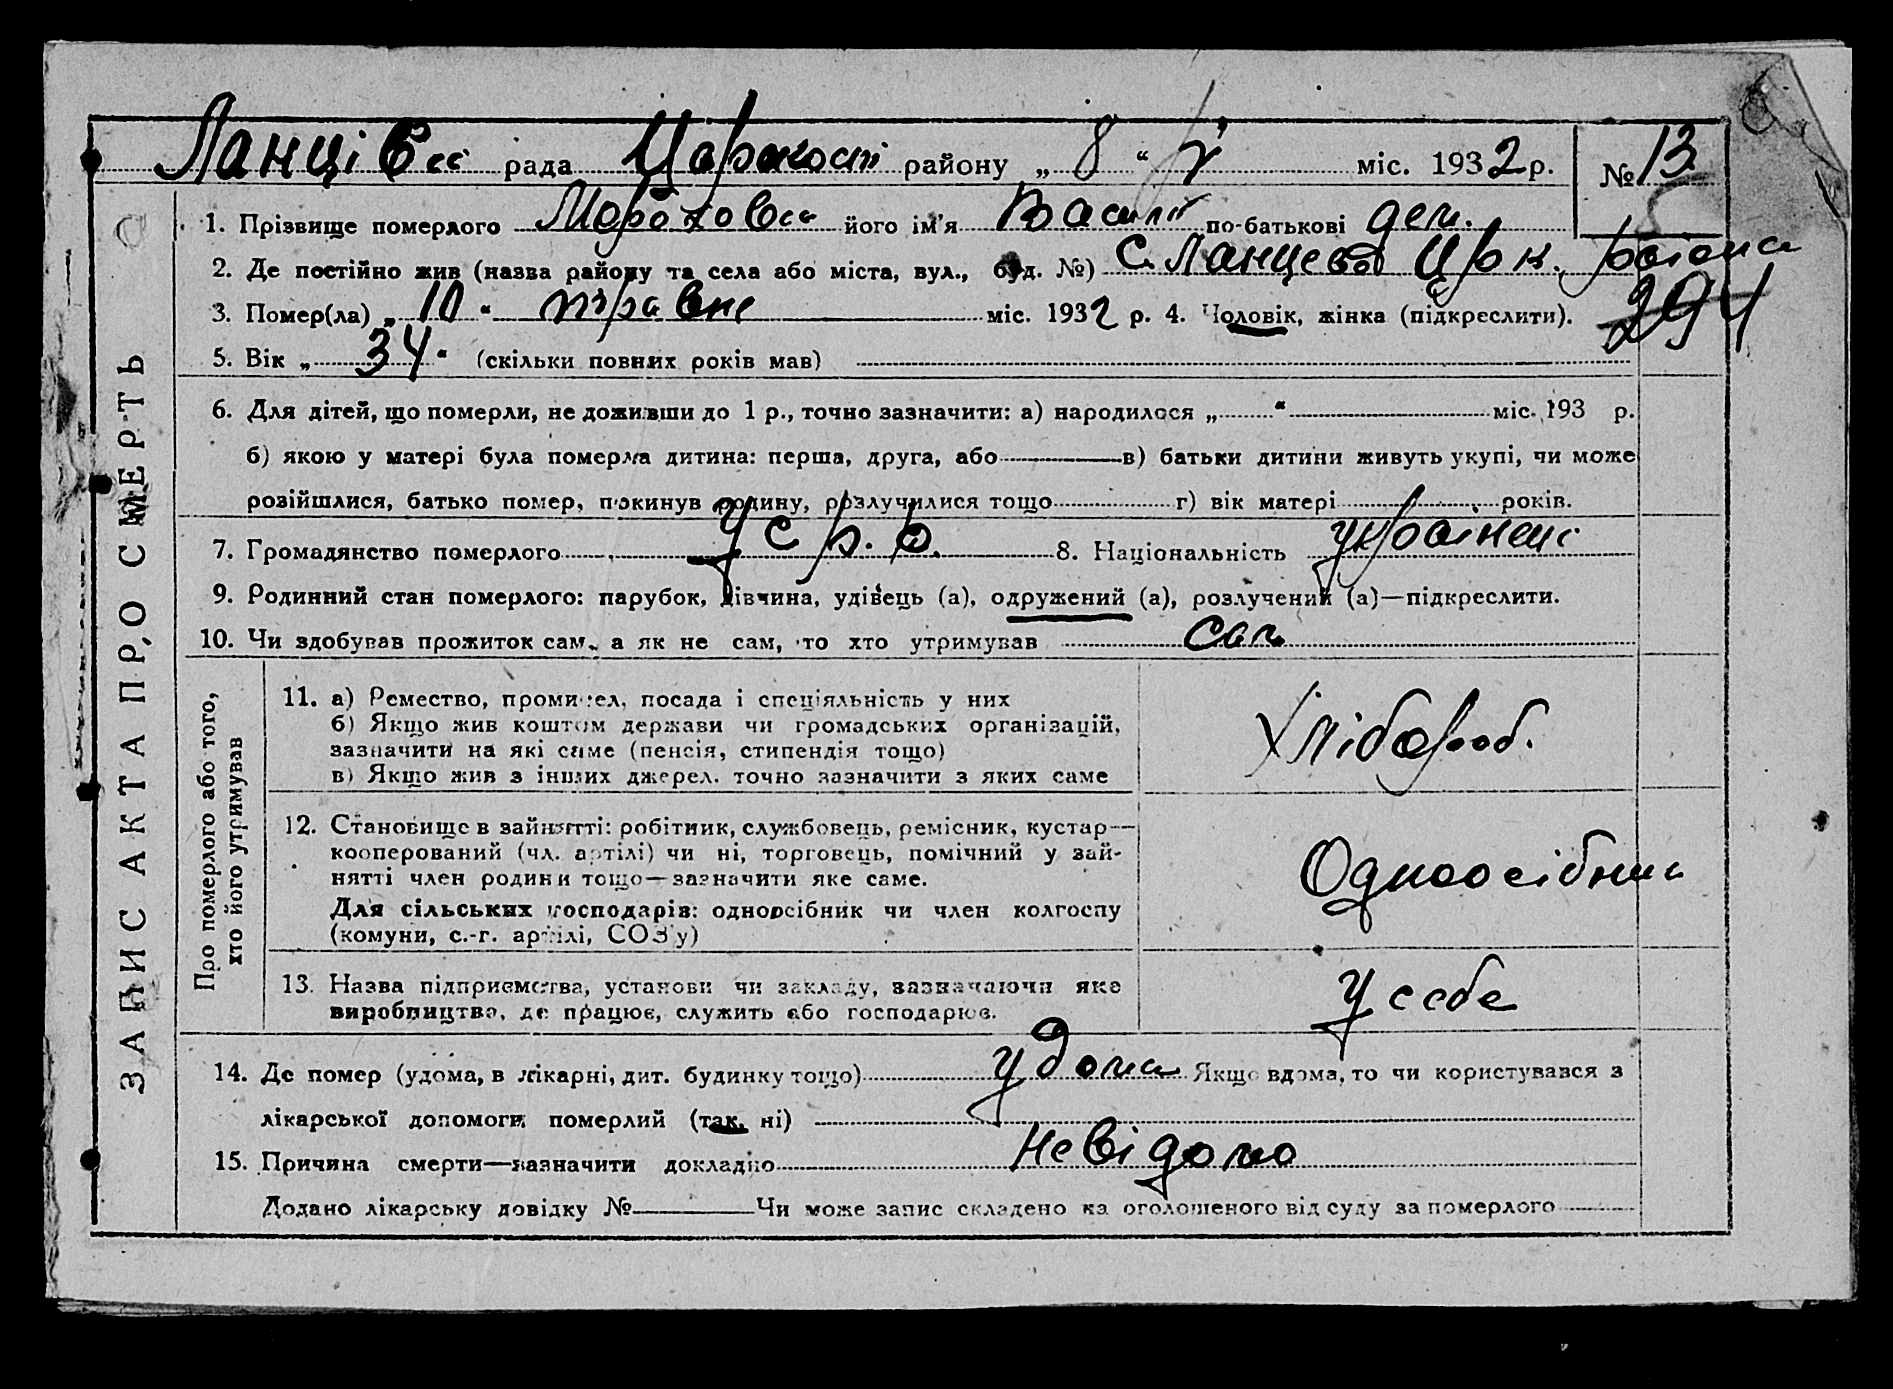 Ланців рада району „ 8 “ міс. 1932 р. № 13
1. Прізвище померлого його ім'я Василь по-батькові дем.
2. Де постійно жив (назва району та села або міста, вул., буд. №) с. Ланцево района
3. Помер(ла) „ 10 “ травне міс. 1932 р. 4. Чоловік, жінка (підкреслити). 294
5. Вік „ 34 “ (скільки повних років мав)
6. Для дітей, що померли, не доживши до 1 р., точно зазначити: а) народилося „ “ міс. 193 р.
б) якою у матері була померла дитина: перша, друга, або в) батьки дитини живуть укупі, чи може
розійшлися, батько помер, покинув родину, розлучилися тощо г) вік матері років.
7. Громадянство померлого У с р. р. 8. Національність українець
9. Родинний стан померлого: парубок, дівчина, удівець (а), одружений (а), розлучений (а)—підкреслити.
10. Чи здобував прожиток сам, а як не сам, то хто утримував сам
ЗАПИС АКТА ПРО СМЕРТЬ
Про померлого або того, хто його утримував
11. а) Ремество, промисел, посада і спеціяльність у них
б) Якщо жив коштом держави чи громадських організацій,
зазначити на які саме (пенсія, стипендія тощо)
в) Якщо жив з інших джерел, точно зазначити з яких саме
Хлібороб.
12. Становище в зайнятті: робітник, службовець, ремісник, кустар—
кооперований (чл. артілі) чи ні, торговець, помічний у зай-
нятті член родини тощо—зазначити яке саме.
Для сільських господарів: одноосібник чи член колгоспу
(комуни, с.-г. артілі, СОЗ'у)
Одноосібник
13. Назва підприємства, установи чи закладу, зазначаючи яке
виробництво, де працює, служить або господарює.
У себе
14. Де помер (удома, в лікарні, дит. будинку тощо) у дома Якщо вдома, то чи користувався з
лікарської допомоги померлий (так, ні)
15. Причина смерти—зазначити докладно невідомо
Додано лікарську довідку № Чи може запис складено на оголошеного від суду за померлого